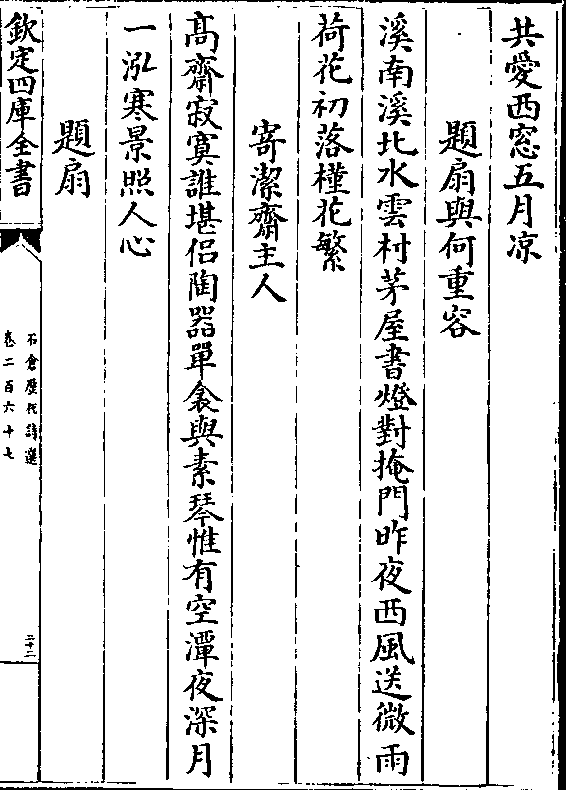 共愛西窓五月凉
題扇與何重容
溪南溪北水雲村茅屋書燈對掩門昨夜西風送微雨
荷花初落槿花繁
寄潔齋主人
髙齋寂寞誰堪侣陶器單衾與素琴惟有空潭夜深月
一泓寒景照人心
題扇
欽定四庫全書
石倉歴代詩選
卷二百六十七
二十二